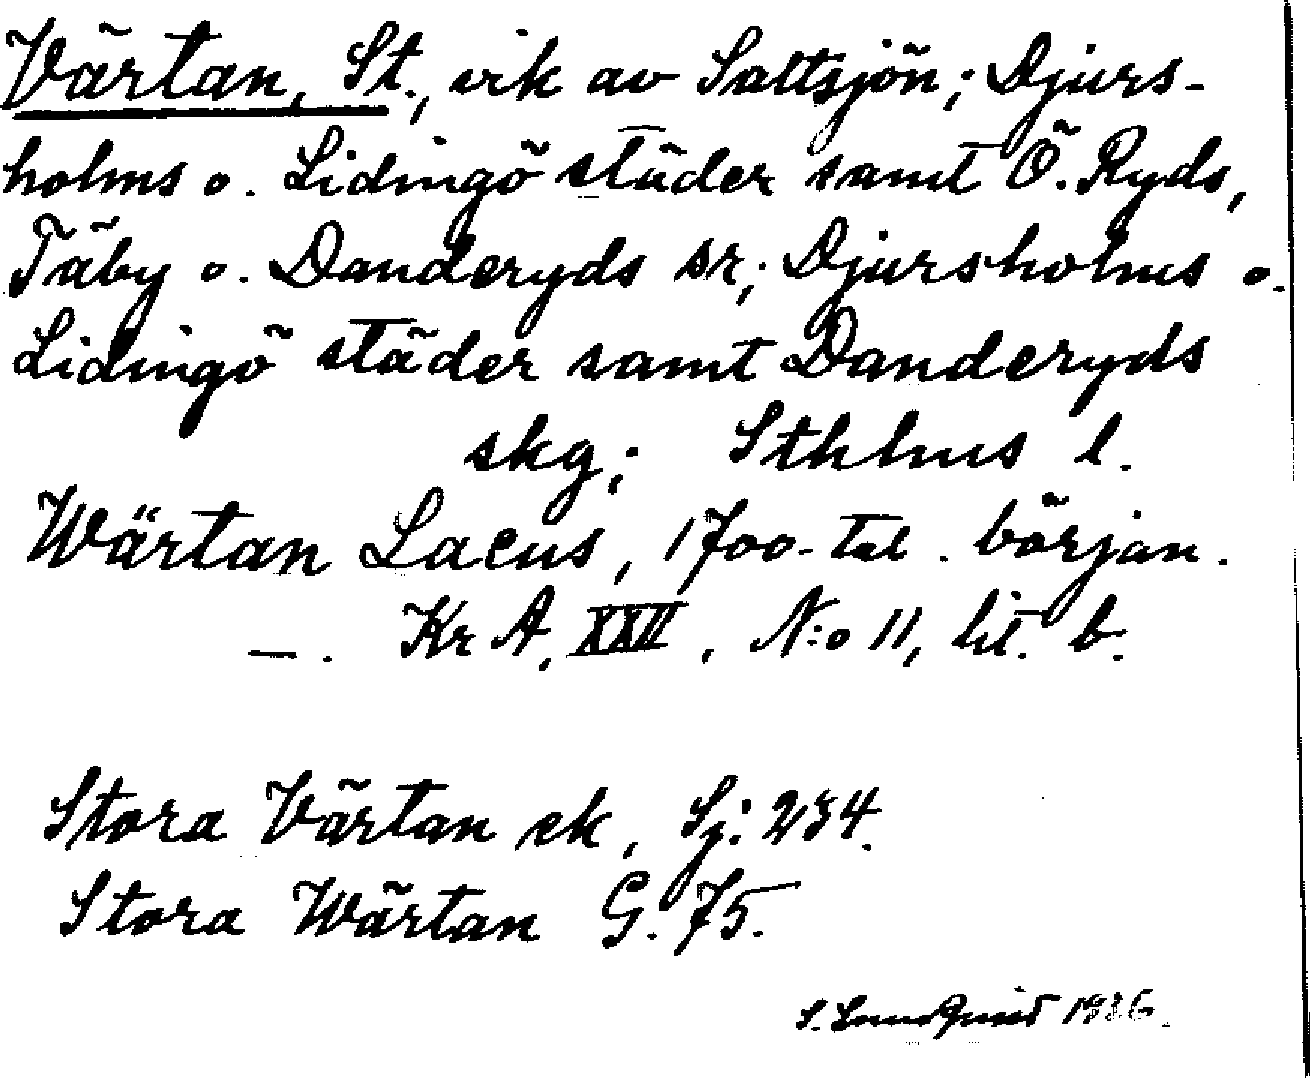 Värtan, St., vik av Saltsjön; Djurs-
holms o. Lidingö städer samt Ö. Ryds,
Täby o. Danderyds sr; Djursholms o.
Lidingö städer samt Danderyds
skg; Sthlms l.
Wärtan Lacus, 1700-tal. början.
—. KrA, XXII, N:o 11, lit. b.
Stora Värtan ek, Sj: 234.
Stora Wärtan G. 75.
S. Lundquist 1936.